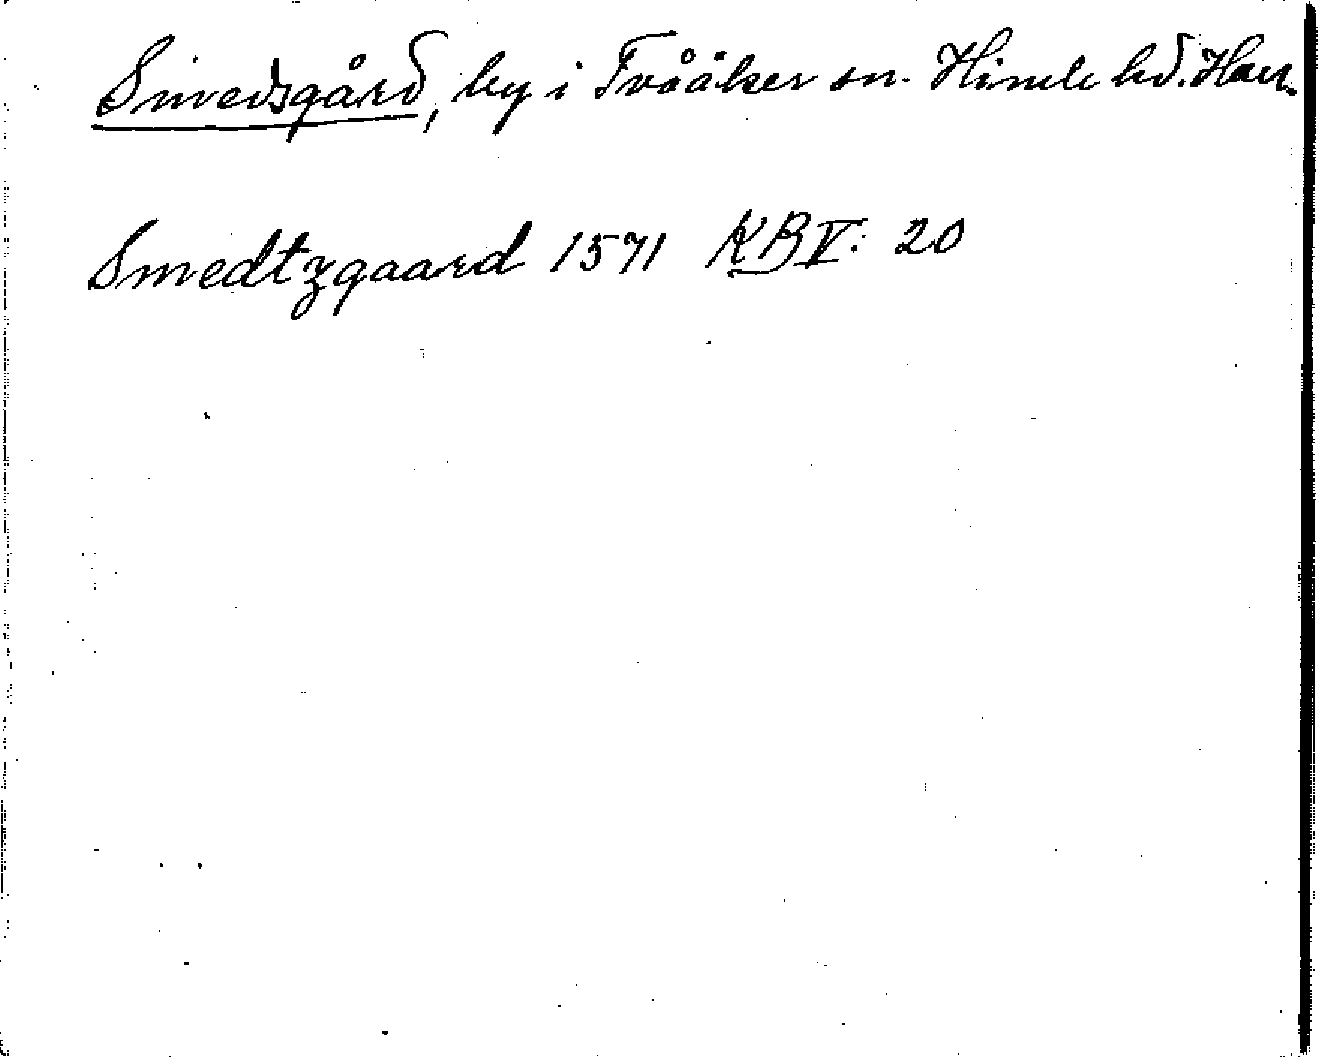 Smedsgård, by i Tvååker sn. Himle hd. Hall.
Smedtzgaard 1571 KB V: 20